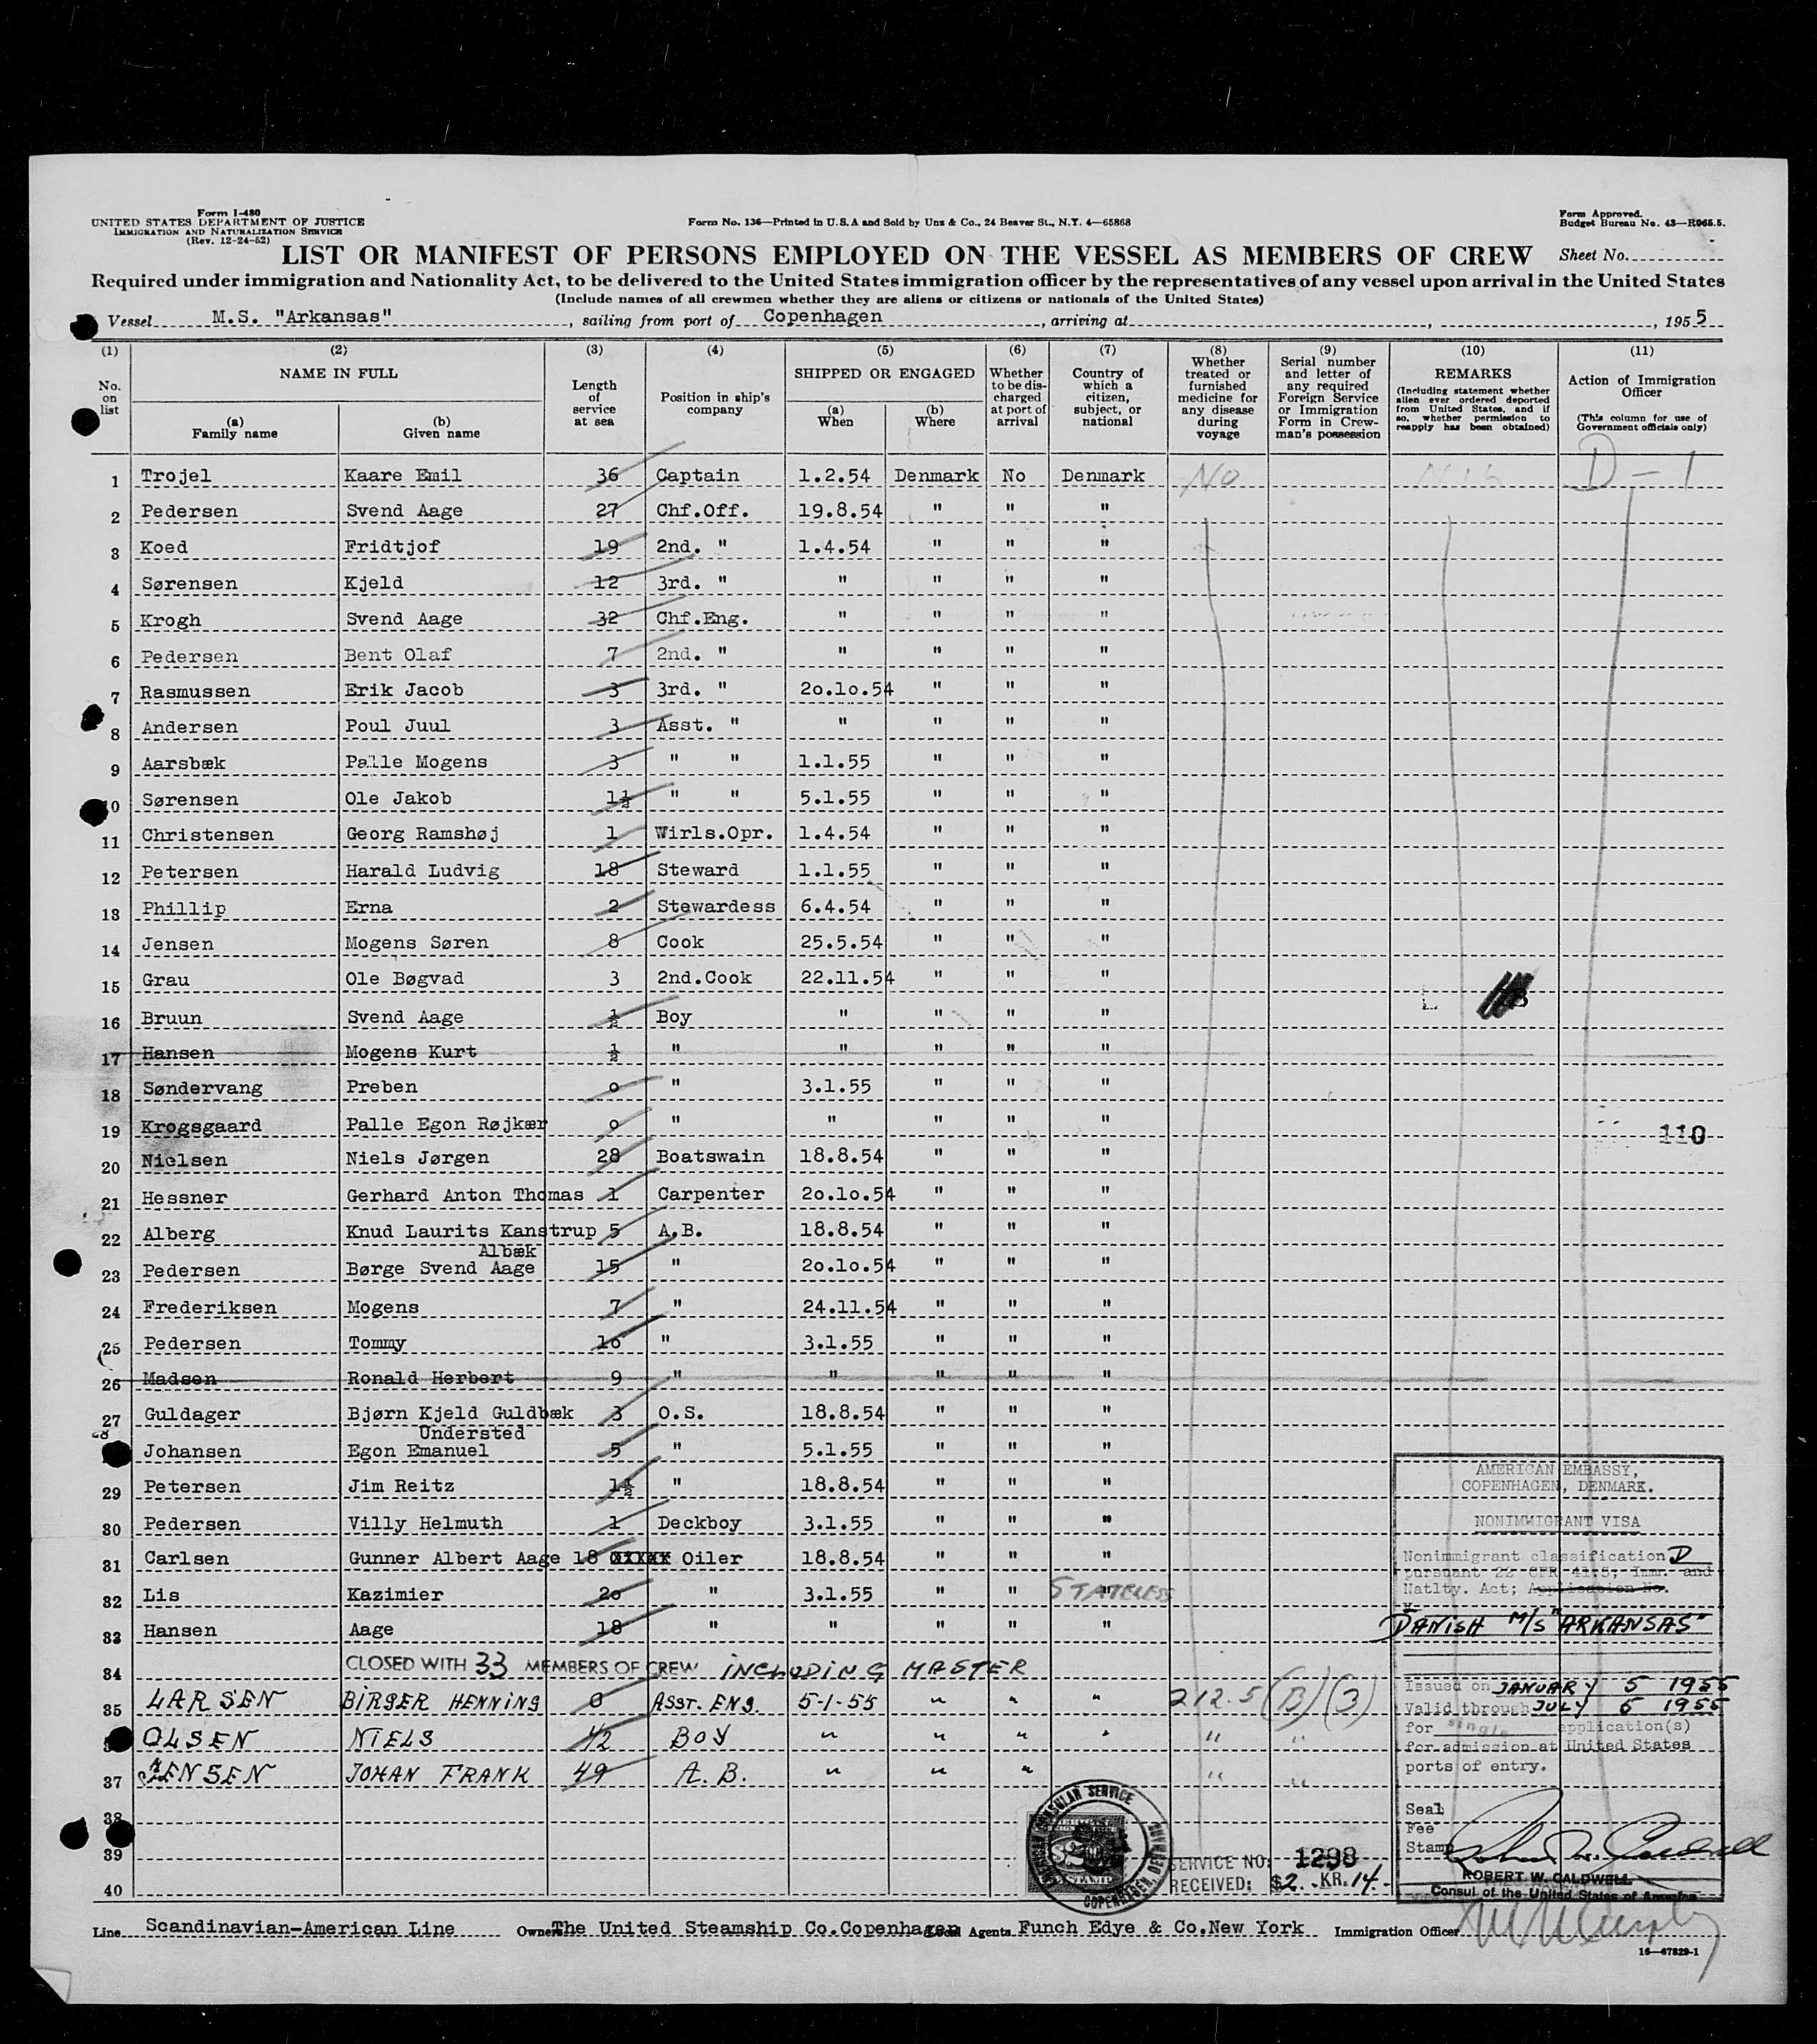 Form I-480
UNITED STATES DEPARTMENT OF JUSTICE
IMMIGRATION AND NATURALIZATION SERVICE
(Rev. 12-24-52)
Form No. 136—Printed in U.S.A and Sold by Unz & Co., 24 Beaver St., N.Y. 4—65868
Form Approved.
Budget Bureau No. 43—R065.5.
LIST OR MANIFEST OF PERSONS EMPLOYED ON THE VESSEL AS MEMBERS OF CREW
Sheet No.
Required under immigration and Nationality Act, to be delivered to the United States immigration officer by the representatives of any vessel upon arrival in the United States
(Include names of all crewmen whether they are aliens or citizens or nationals of the United States)
Vessel M.S. "Arkansas", sailing from port of Copenhagen, arriving at , , 1955
(1) (2) (3) (4) (5) (6) (7) (8) (9) (10) (11)
No. on list
NAME IN FULL
(a) Family name
(b) Given name
Length of service at sea
Position in ship's company
SHIPPED OR ENGAGED
(a) When
(b) Where
Whether to be discharged at port of arrival
Country of which a citizen, subject, or national
Whether treated or furnished medicine for any disease during voyage
Serial number and letter of any required Foreign Service or Immigration Form in Crewman's possession
REMARKS
(Including statement whether alien ever ordered deported from United States, and if so, whether permission to reapply has been obtained)
Action of Immigration Officer
(This column for use of Government officials only)
1 Trojel Kaare Emil 36 Captain 1.2.54 Denmark No Denmark No D - 1
2 Pedersen Svend Aage 27 Chf.Off. 19.8.54 " " "
3 Koed Fridtjof 19 2nd. " 1.4.54 " " "
4 Sørensen Kjeld 12 3rd. " " " " "
5 Krogh Svend Aage 32 Chf.Eng. " " " "
6 Pedersen Bent Olaf 7 2nd. " " " " "
7 Rasmussen Erik Jacob 3 3rd. " 20.10.54 " " "
8 Andersen Poul Juul 3 Asst. " " " " "
9 Aarsbæk Palle Mogens 3 " " 1.1.55 " " "
10 Sørensen Ole Jakob 1½ " " 5.1.55 " " "
11 Christensen Georg Ramshøj 1 Wirls.Opr. 1.4.54 " " "
12 Petersen Harald Ludvig 18 Steward 1.1.55 " " "
13 Phillip Erna 2 Stewardess 6.4.54 " " "
14 Jensen Mogens Søren 8 Cook 25.5.54 " " "
15 Grau Ole Bøgvad 3 2nd.Cook 22.11.54 " " "
16 Bruun Svend Aage ½ Boy " " " "
17 Hansen Mogens Kurt ½ " " " " "
18 Søndervang Preben o " 3.1.55 " " "
19 Krogsgaard Palle Egon Røjkær o " " " " "
110
20 Nielsen Niels Jørgen 28 Boatswain 18.8.54 " " "
21 Hessner Gerhard Anton Thomas 1 Carpenter 20.10.54 " " "
22 Alberg Knud Laurits Kanstrup 5 A.B. 18.8.54 " " "
Albæk
23 Pedersen Børge Svend Aage 15 " 20.10.54 " " "
24 Frederiksen Mogens 7 " 24.11.54 " " "
25 Pedersen Tommy 10 " 3.1.55 " " "
26 Madsen Ronald Herbert 9 " " " " "
27 Guldager Bjørn Kjeld Guldbæk 3 O.S. 18.8.54 " " "
Understed
Johansen Egon Emanuel 5 " 5.1.55 " " "
29 Petersen Jim Reitz 1½ " 18.8.54 " " "
30 Pedersen Villy Helmuth 1 Deckboy 3.1.55 " " "
31 Carlsen Gunner Albert Aage 18 Oiler 18.8.54 " " "
32 Lis Kazimier 20 " 3.1.55 " " " STATELESS
33 Hansen Aage 18 " " " " "
34 CLOSED WITH 33 MEMBERS OF CREW INCLUDING MASTER
35 LARSEN BIRGER HENNING 0 ASST. ENG. 5-1-55 " " " 212.5 (B) (3)
OLSEN NIELS 1/2 BOY " " " " " "
37 JENSEN JOHAN FRANK 49 A.B. " " " " "
38
39
40
AMERICAN EMBASSY,
COPENHAGEN, DENMARK.
NONIMMIGRANT VISA
Nonimmigrant classification D
pursuant 22 CFR 41.5, Immr. and
Natlty. Act; Application No.
V
DANISH M/S "ARKANSAS"
Issued on JANUARY 5 1955
Valid through JULY 5 1955
for single application(s)
for admission at United States
ports of entry.
Seal
Fee
Stamp
ROBERT W. CALDWELL
Consul of the United States of America
AMERICAN CONSULAR SERVICE
COPENHAGEN, DENMARK
STAMP
SERVICE NO: 1298
RECEIVED: $2.- KR. 14.-
Line Scandinavian-American Line Owners The United Steamship Co.Copenhagen Local Agents Funch Edye & Co.New York Immigration Officer
16—67829-1